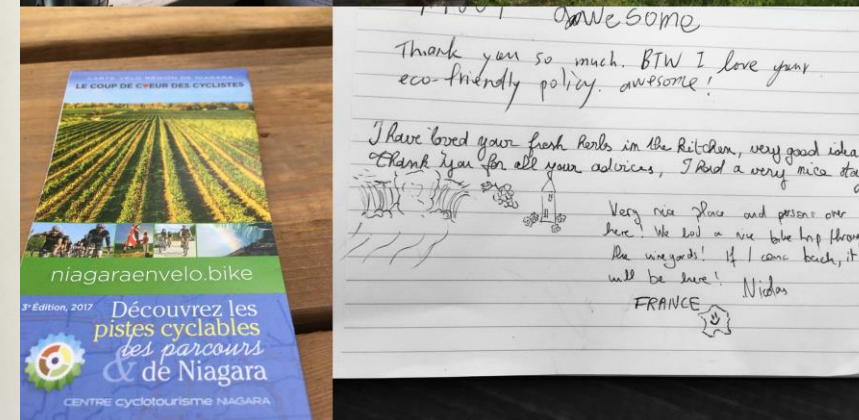 CARTE VÉLO RÉGION DE NIAGARA
LE COUP DE CŒUR DES CYCLISTES
niagaraenvelo.bike
3e Édition, 2017
Découvrez les
pistes cyclables
les parcours
& de Niagara
CENTRE cyclotourisme NIAGARA
awesome
Thank you so much. BTW I love your
eco-friendly policy. awesome!
I have loved your fresh herbs in the kitchen, very good idea
Thank you for all your advices, I had a very nice stay
Very nice place and persons over
here! We had a nice bike trip throu
the vineyards! If I come back, it
will be here!
Nicolas
FRANCE